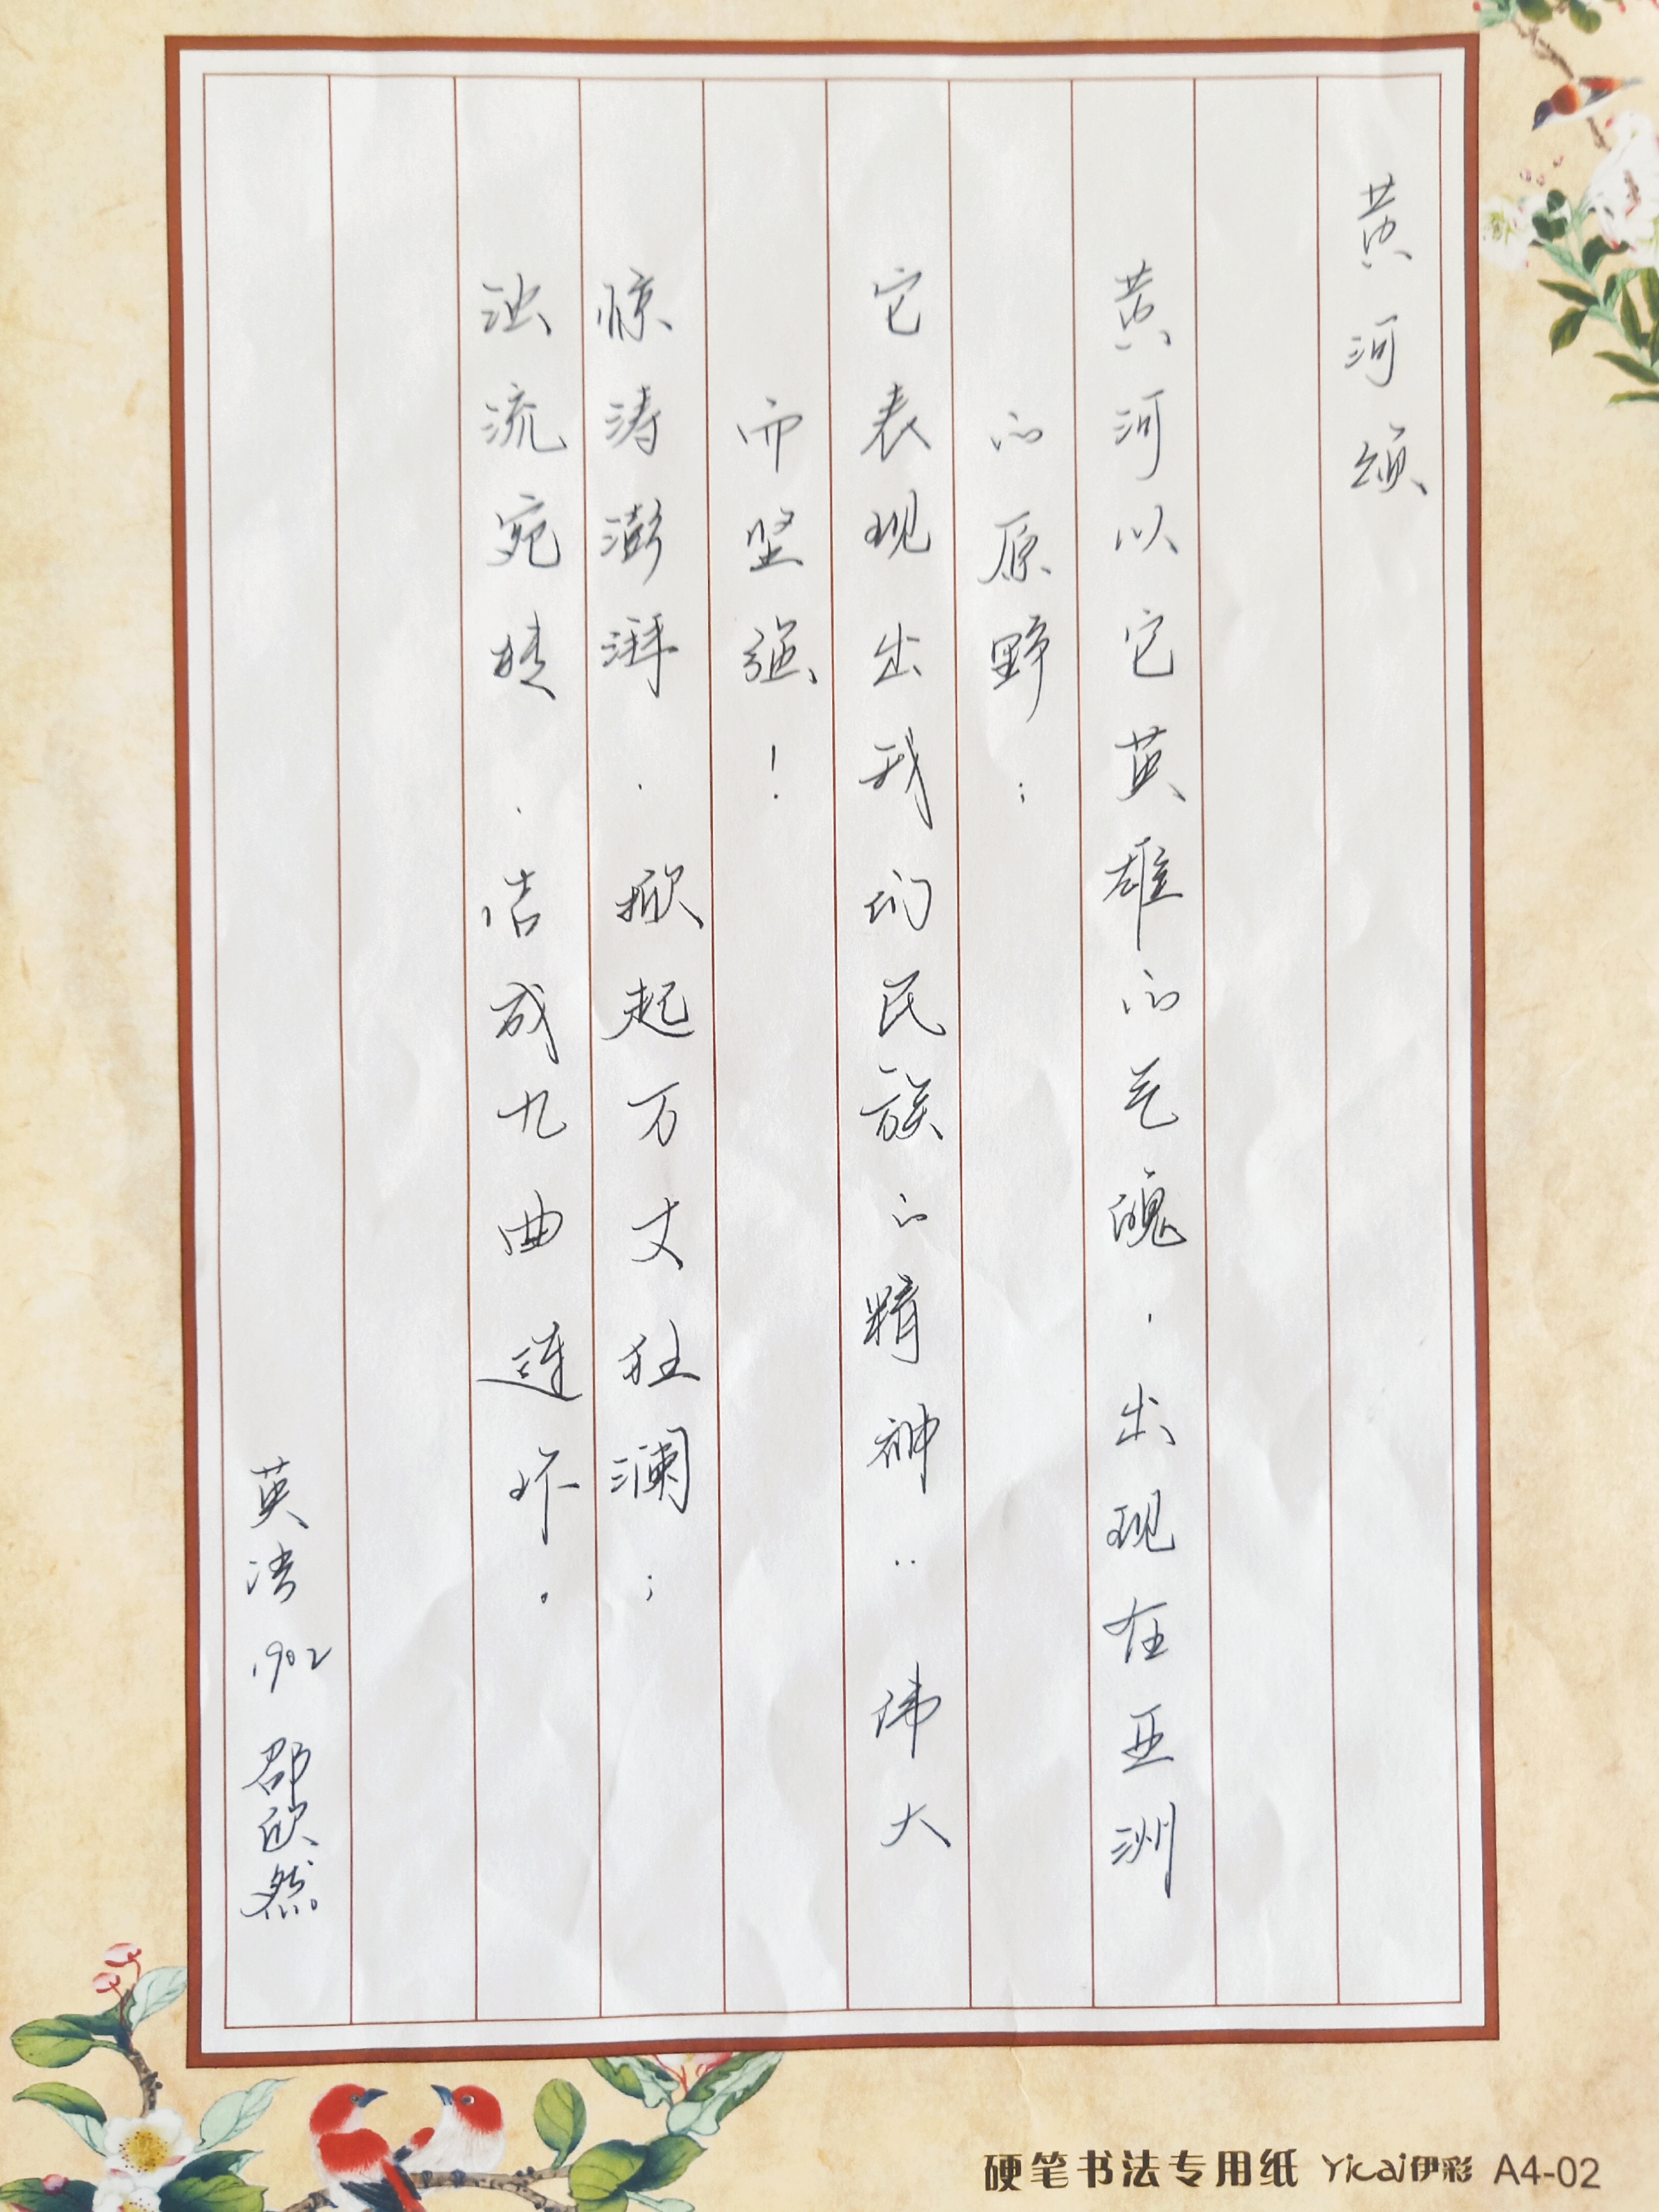 黄河颂
黄河以它英雄的气魄，出现在亚洲
的原野；
它表现出我们民族的精神：伟大
而坚强！
惊涛澎湃，掀起万丈狂澜；
浊流宛转，结成九曲连环。
英语1902 邵欣然
硬笔书法专用纸 Yicai伊彩 A4-02